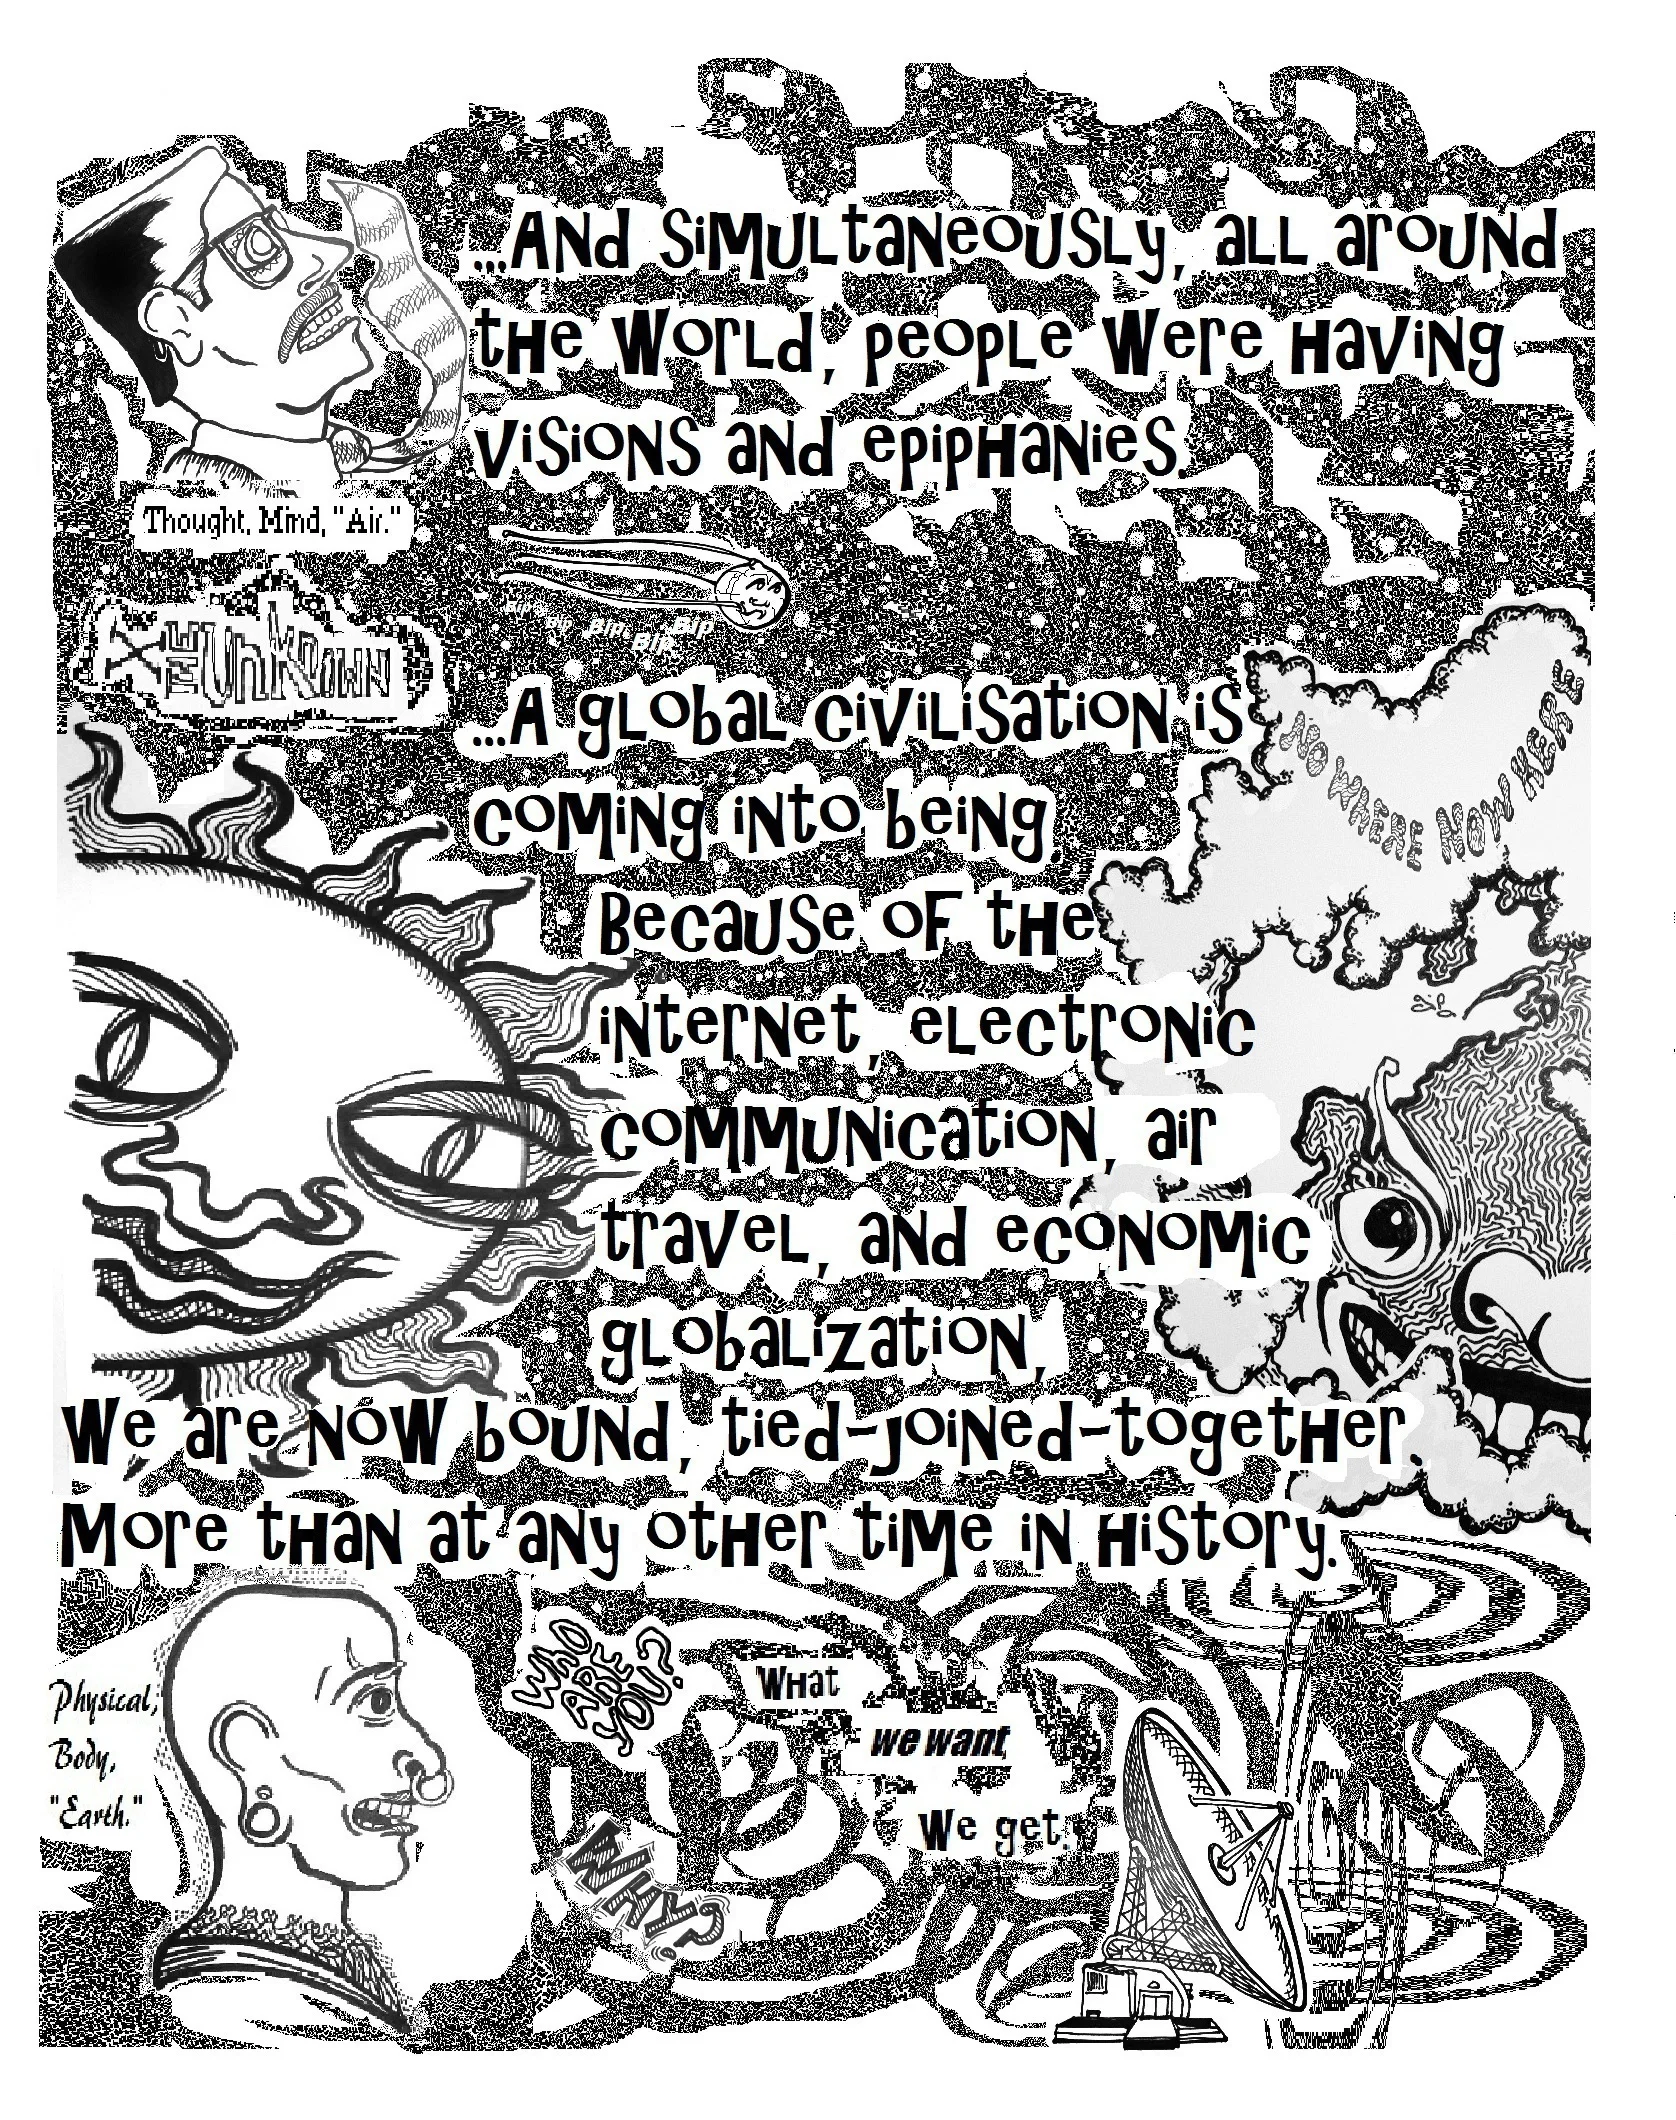 ...And simultaneously, all around
the world, people were having
visions and epiphanies.
Thought, Mind, "Air."
Bip Bip Bip Bip Bip
THE UNKNOWN
...A global civilisation is
coming into being.
NO WHERE NOW HERE
Because of the
internet, electronic
communication, air
travel, and economic
globalization,
We are now bound, tied-joined-together.
More than at any other time in history.
Physical,
Body,
"Earth."
WHO
ARE
YOU?
What
we want
We get.
WHY?